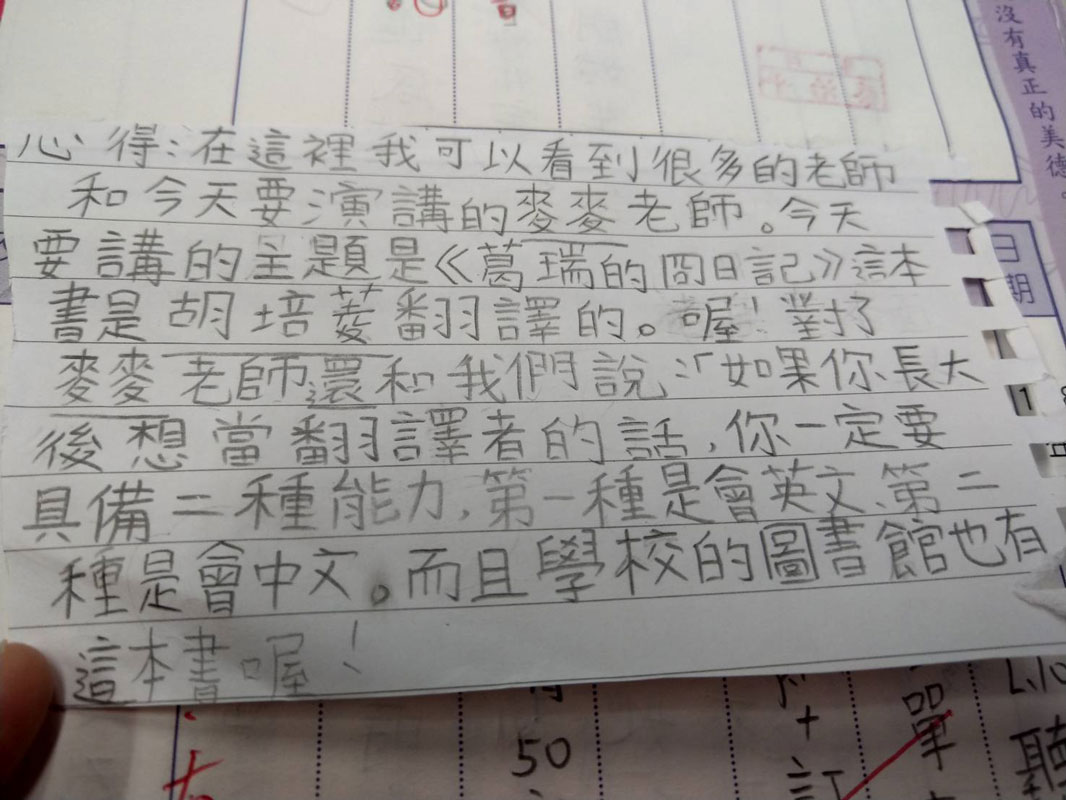 沒有真正的美德。
日期
心得:在這裡我可以看到很多的老師
和今天要演講的麥麥老師。今天
要講的主題是《葛瑞的囧日記》這本
書是胡培菱翻譯的。喔!對了
麥麥老師還和我們說:「如果你長大
後想當翻譯者的話,你一定要
具備二種能力,第一種是會英文、第二
種是會中文。而且學校的圖書館也有
這本書喔!
1
50
單
聽